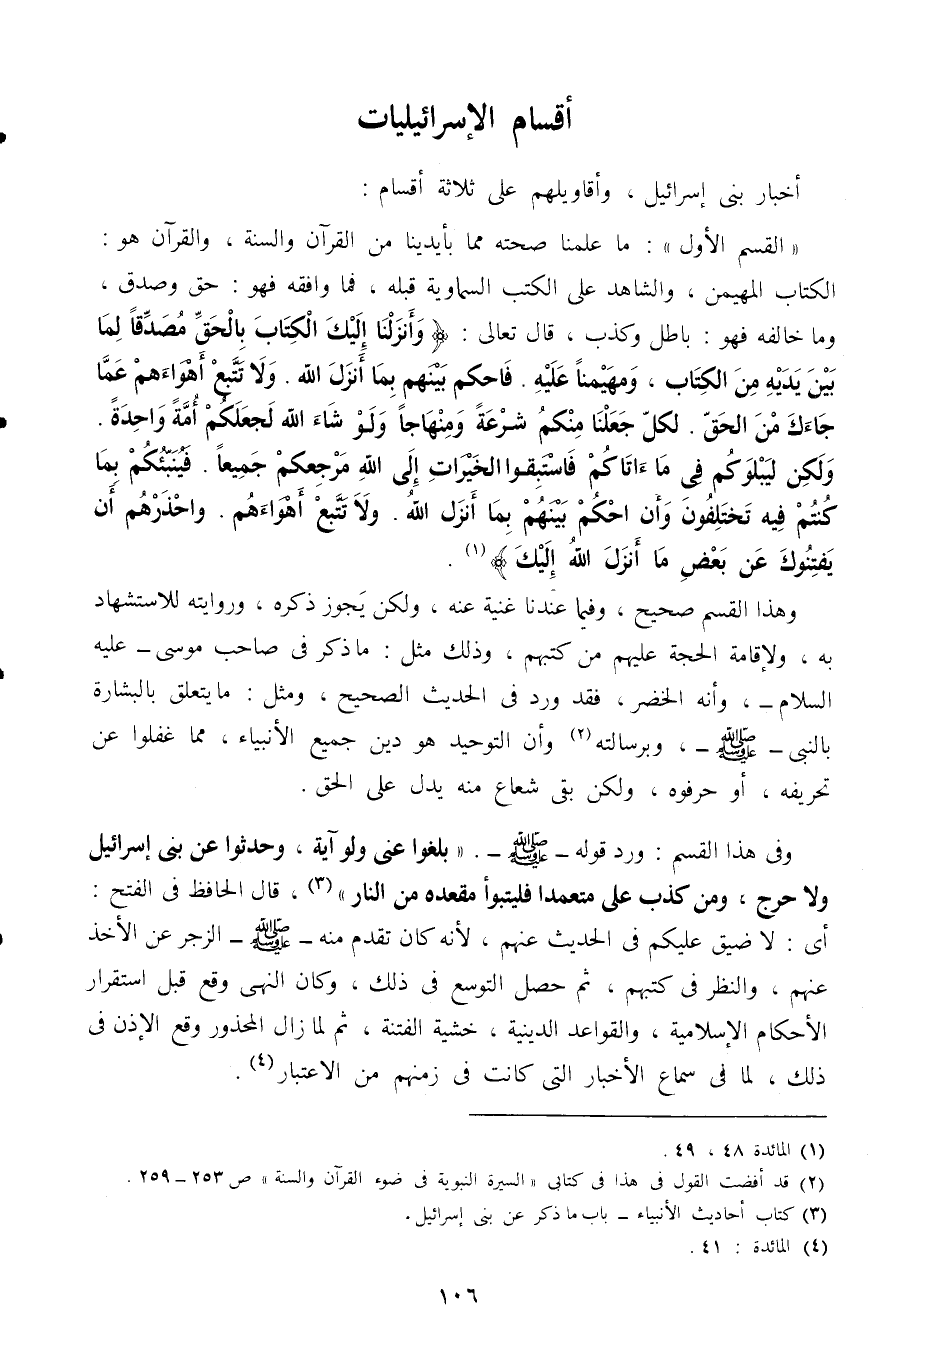 أقسام الإسرائيليات
أخبار بنى إسرائيل ، وأقاويلهم على ثلاثة أقسام :
« القسم الأول » : ما علمنا صحته مما بأيدينا من القرآن والسنة ، والقرآن هو :
الكتاب المهيمن ، والشاهد على الكتب السماوية قبله ، فما وافقه فهو : حق وصدق ،
وما خالفه فهو : باطل وكذب ، قال تعالى : ﴿ وَأَنزَلْنَا إِلَيْكَ الْكِتَابَ بِالْحَقِّ مُصَدِّقاً لِمَا
بَيْنَ يَدَيْهِ مِنَ الكِتَابِ ، وَمهَيْمناً عَلَيْهِ . فَاحكم بَيْنَهم بِمَا أَنزَلَ الله . وَلَا تَتَّبعْ أَهْوَاءَهمْ عَمَّا
جَاءَكَ مْنَ الحَقّ . لكلّ جَعَلْنَا مِنْكمُ شرْعَةً وَمنْهَاجاً وَلَوْ شَاءَ الله لَجعَلَكُمْ أُمَّةً وَاحِدَةً .
وَلَكِن لَيَبْلوَكُم فِى مَا ءَاتَاكُمْ فَاسْتَبِقوا الخَيْرَاتِ إِلَى اللهِ مَرْجعكمْ جَميعاً . فَيُنَبّئكُمْ بِمَا
كُنتُمْ فِيه تَختَلِفُونَ وَأَن احْكُمْ بَيْنَهُمْ بِمَا أَنزَل اللهُ . ولَا تَتَّبعْ أَهْوَاءَهم . واحْذَرْهُم أَن
يَفتِنُوكَ عَن بَعْضِ مَا أَنزَلَ اللهُ إِلَيْكَ ﴾(١) .
وهذا القسم صحيح ، وفيما عندنا غنية عنه ، ولكن يَجوز ذكره ، وروايته للاستشهاد
به ، ولإقامة الحجة عليهم من كتبهم ، وذلك مثل : ما ذكر فى صاحب موسى ـ عليه
السلام ـ ، وأنه الخضر ، فقد ورد فى الحديث الصحيح ، ومثل : ما يتعلق بالبشارة
بالنبى ـ ﷺ ـ ، وبرسالته(٢) وأن التوحيد هو دين جميع الأنبياء ، مما غفلوا عن
تحريفه ، أو حرفوه ، ولكن بقى شعاع منه يدل على الحق .
وفى هذا القسم : ورد قوله ـ ﷺ ـ . « بلغوا عنى ولو آية ، وحدثوا عن بنى إسرائيل
ولا حرج ، ومن كذب على متعمدا فليتبوأ مقعده من النار »(٣) ، قال الحافظ فى الفتح :
أى : لا ضيق عليكم فى الحديث عنهم ، لأنه كان تقدم منه ـ ﷺ ـ الزجر عن الأخذ
عنهم ، والنظر فى كتبهم ، ثم حصل التوسع فى ذلك ، وكان النهى وقع قبل استقرار
الأحكام الإسلامية ، والقواعد الدينية ، خشية الفتنة ، ثم لما زال المحذور وقع الإذن فى
ذلك ، لما فى سماع الأخبار التى كانت فى زمنهم من الاعتبار(٤) .
(١) المائدة ٤٨ ، ٤٩ .
(٢) قد أفضت القول فى هذا فى كتابى « السيرة النبوية فى ضوء القرآن والسنة » ص ٢٥٣ ـ ٢٥٩ .
(٣) كتاب أحاديث الأنبياء ـ باب ما ذكر عن بنى إسرائيل .
(٤) المائدة : ٤١ .
١٠٦